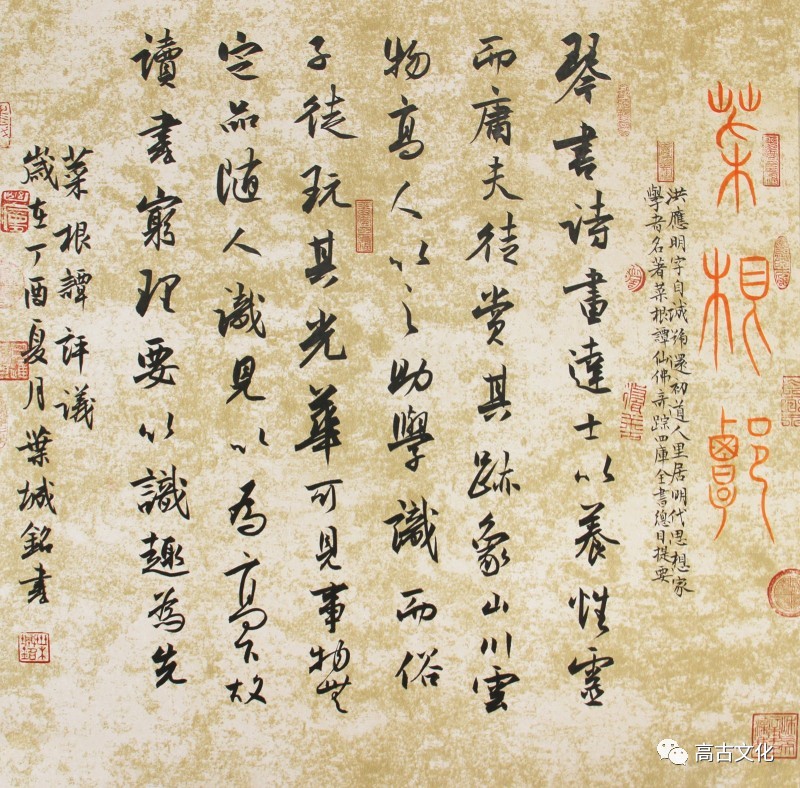 菜根譚
洪應明字自誠號還初道人里居明代思想家
學者名著菜根譚仙佛奇踪四庫全書總目提要
琴書詩畫達士以養性靈
而庸夫徒赏其跡象山川雲
物高人以之助學識而俗
子徒玩其光華可見事物無
定品随人識見以為高下故
讀書窮理要以識趣為先
菜根譚評議
歲在丁酉夏月葉城銘書
高古文化